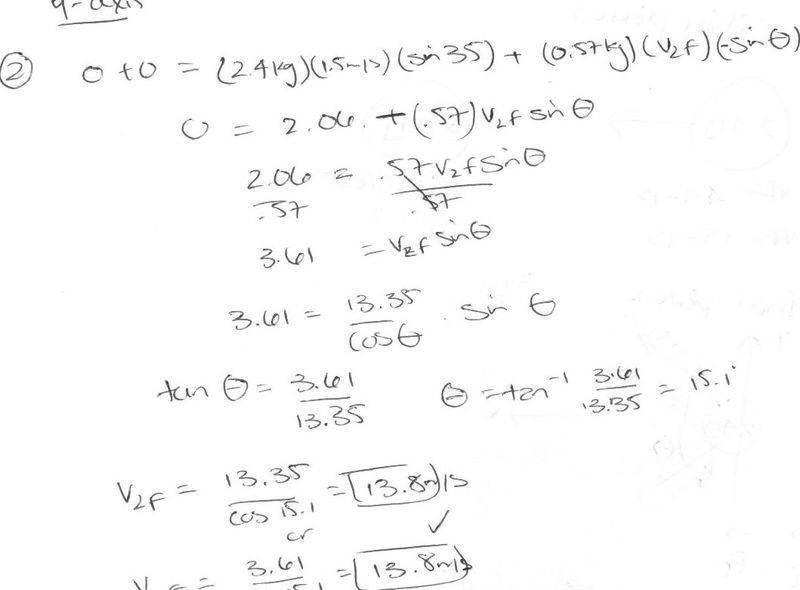 y-axis
② 0 + 0 = (2.4kg)(1.5m/s)(sin 35) + (0.57kg)(V2f)(-sin θ)
0 = 2.06 + (.57)V2f sin θ
2.06/.57 = .57V2f sin θ/.57
3.61 = V2f sin θ
3.61 = 13.35/cos θ · sin θ
tan θ = 3.61/13.35 θ = tan⁻¹ 3.61/13.35 = 15.1°
V2f = 13.35/cos 15.1 = 13.8m/s
or ✓
3.61 = 13.8m/s